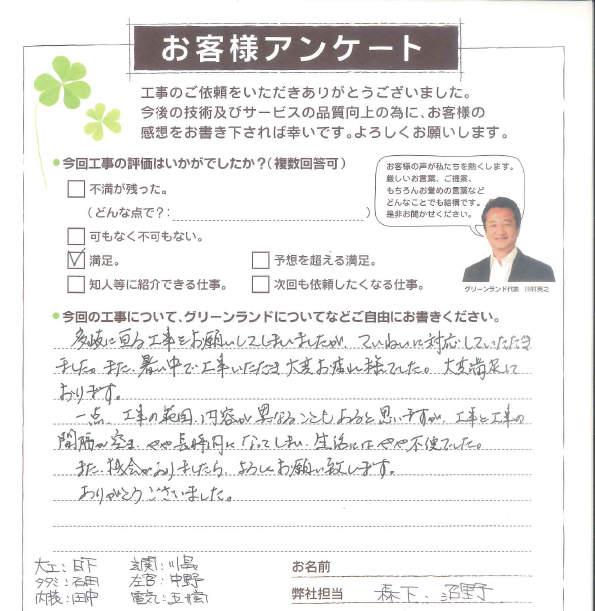 お客様アンケート
工事のご依頼をいただきありがとうございました。
今後の技術及びサービスの品質向上の為に、お客様の
感想をお書き下されば幸いです。よろしくお願いします。
●今回工事の評価はいかがでしたか?(複数回答可)
不満が残った。
(どんな点で?: )
可もなく不可もない。
満足。
予想を超える満足。
知人等に紹介できる仕事。
次回も依頼したくなる仕事。
お客様の声が私たちを熱くします。
厳しいお言葉、ご提案、
もちろんお誉めの言葉など
どんなことでも結構です。
是非お聞かせください。
グリーンランド代表 川村英之
●今回の工事について、グリーンランドについてなどご自由にお書きください。
多岐に亘る工事をお願いしてしまいましたが、ていねいに対応していただき
ました。また、暑い中で工事いただき大変お疲れ様でした。大変満足して
おります。
一点、工事の範囲、内容が異なることもあると思いますが、工事と工事の
間隔が空き、やや長時間になってしまい、生活にはやや不便でした。
また、機会がありましたら、よろしくお願い致します。
ありがとうございました。
大工:日下
玄関:川畠
タタミ:石田
左官:中野
内装:田中
電気:
お名前
弊社担当
森下、沼野